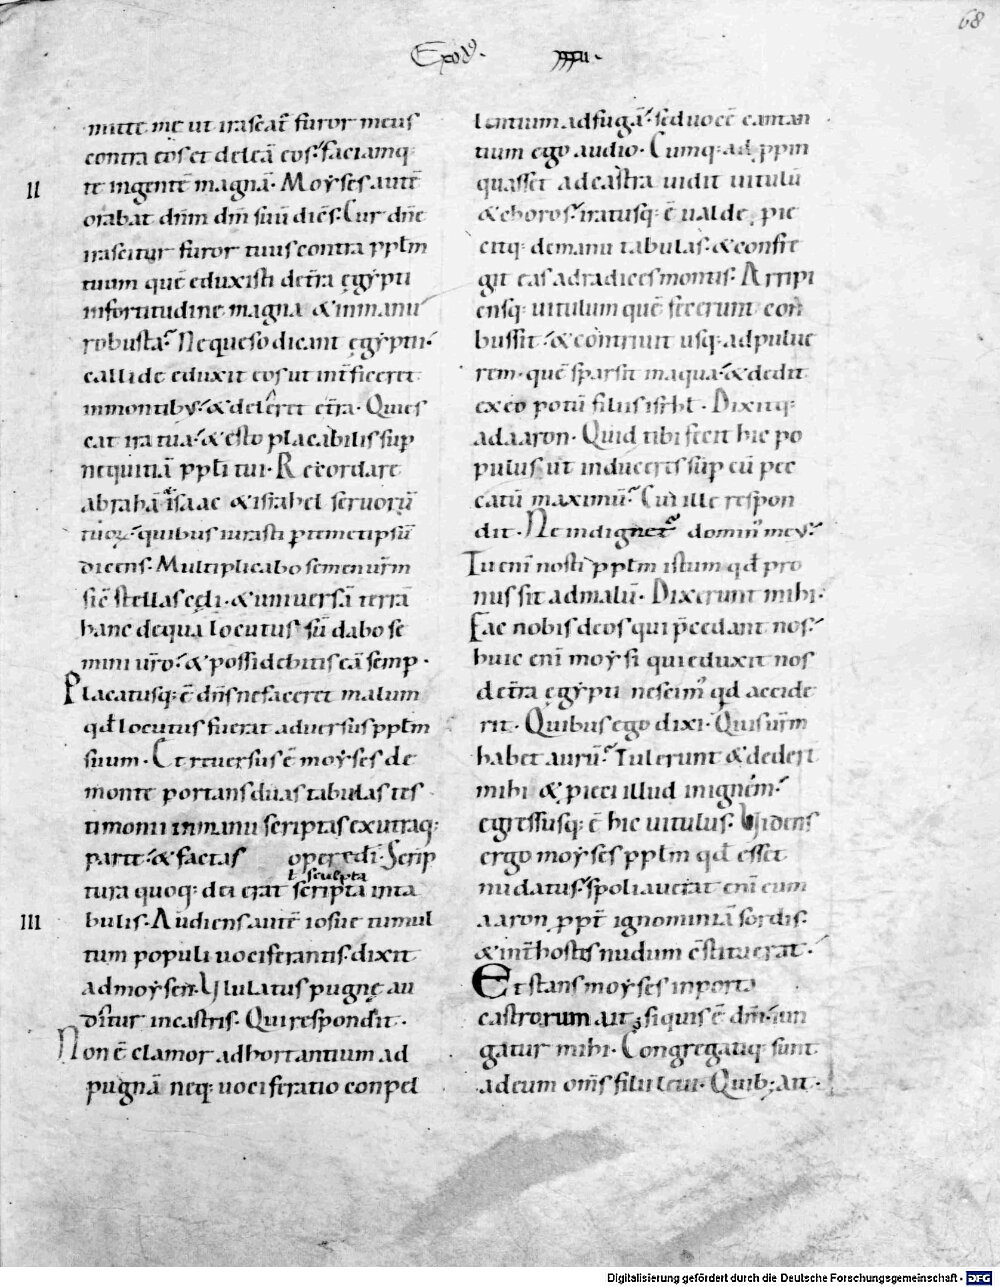 68
Exod9. xxxii.
mitte me ut irascat᷑ furor meus
contra eos et deleā eos. faciamq;
II
te ingentē magnā. Moẏses autē
orabat dn̄m dm̄ suū dicēs. Cur dn̄e
irascitur furor tuus contra pp̄lm
tuum quē eduxisti de tr̄a ęgẏpti
in fortitudine magna & in manu
robusta. Ne queso dicant ęgẏptii.
callide eduxit eos ut int̄ficeret
in montib; & deleret e tr̄a. Quies
cat ira tua. & esto placabilis sup̄
nequitiā pp̄li tui. Recordare
abrahā isaac & israhel seruorū
tuoꝝ. quibus iurasti p̄ temetipsū
dicens. Multiplicabo semen ur̄m
sic̄ stellas cęli. & uniuersā terrā
hanc de qua locutus sū dabo se
mini ur̄o. & possidebitis eā semp̄.
Placatusq; ē dn̄s ne faceret malum
qđ locutus fuerat aduersus pp̄lm
suum. Et reuersus ē moẏses de
monte portans duas tabulas tes
timonii in manu scriptas ex utraq;
parte. & factas opere dī. Scrip
ł sculpta
tura quoq; dei erat scripta in ta
III
bulis. Audiens autē iosue tumul
tum populi uociferantis. dixit
ad moẏsen. Ululatus pugnę au
ditur in castris. Qui respondit.
Non ē clamor adhortantium ad
pugnā neq; uociferatio conpel
lentium ad fugā. sed uocē cantan
tium ego audio. Cumq; ad pp̄in
quasset ad castra uidit uitulū
& choros. iratusq; ē ualde. p̄ie
citq; de manu tabulas. & confre
git eas ad radices montis. Arripi
ensq; uitulum quē fecerunt con
bussit. & contriuit usq; ad pulue
rem. quē sparsit in aqua. & dedit
ex eo potū filiis isrl̄. Dixitq;
ad aaron. Quid tibi fecit hic po
pulus ut induceres sup̄ eū pec
catū maximū. Cui ille respon
dit. Ne indignet᷑ domin9 meus.
Tu enī nosti pp̄lm istum qđ pro
nus sit ad malū. Dixerunt mihi.
Fac nobis deos qui p̄cedant nos.
huic enī moẏsi qui eduxit nos
de tr̄a ęgẏpti nescim9 qđ accide
rit. Quibus ego dixi. Quis ur̄m
habet aurū. Tulerunt & dedert̄
mihi & p̄ieci illud in ignem.
egressusq; ē hic uitulus. Uidens
ergo moẏses pp̄lm qđ esset
nudatus. spoliauerat enī eum
aaron ppt̄ ignominiā sordis.
& int̄ hostes nudum c̄stituerat.
Et stans moẏses in porta
castrorum ait. siquis ē dn̄i. iun
gatur mihi. Congregatiq; sunt
ad eum om̄s filii leui. Quib; ait.
Digitalisierung gefördert durch die Deutsche Forschungsgemeinschaft - DFG